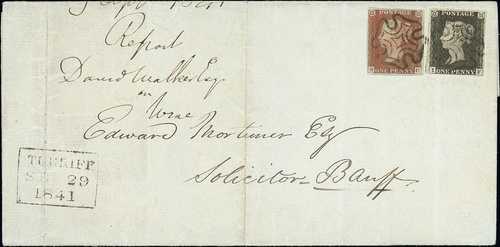 Sept 1841
Report
David Walker Esq
on
Wrae
Edward Mortimer Esq
Solicitor Banff
TURRIFF
SEP 29
1841
POSTAGE
ONE PENNY
POSTAGE
ONE PENNY